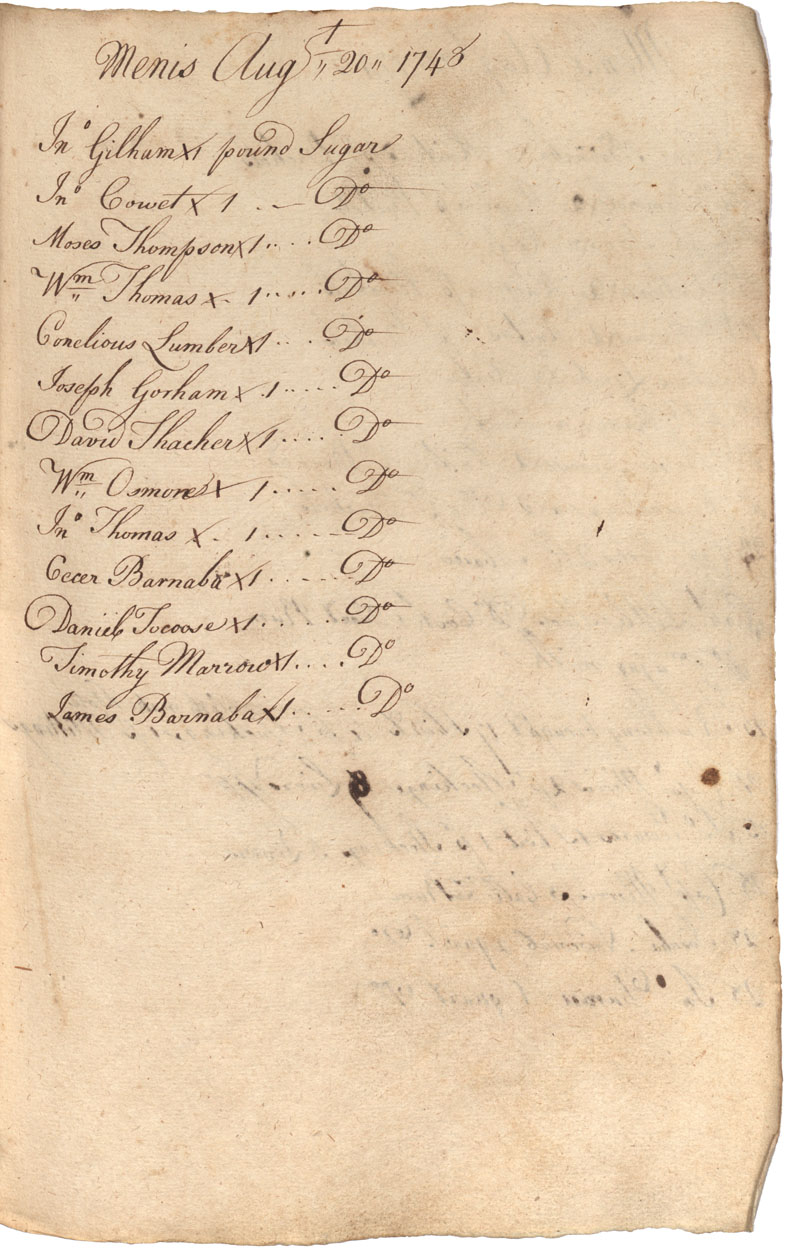 Menis Augst 20 1748
Jno Gilham x 1 pound Sugar
Jno Cowet x 1 .. — Do
Moses Thompson x 1 .... Do
Wm Thomas x . 1 ..... Do
Conelious Lumber x 1 .... Do
Joseph Gorham x . 1 ..... Do
David Thacher x 1 ..... Do
Wm Osmore x 1 ..... Do
Jno Thomas x . 1 ..... Do
Cecer Barnaba x 1 ..... Do
Daniel Tocoose x 1 ..... Do
Timothy Marrow x 1 .... Do
James Barnaba x 1 ..... Do